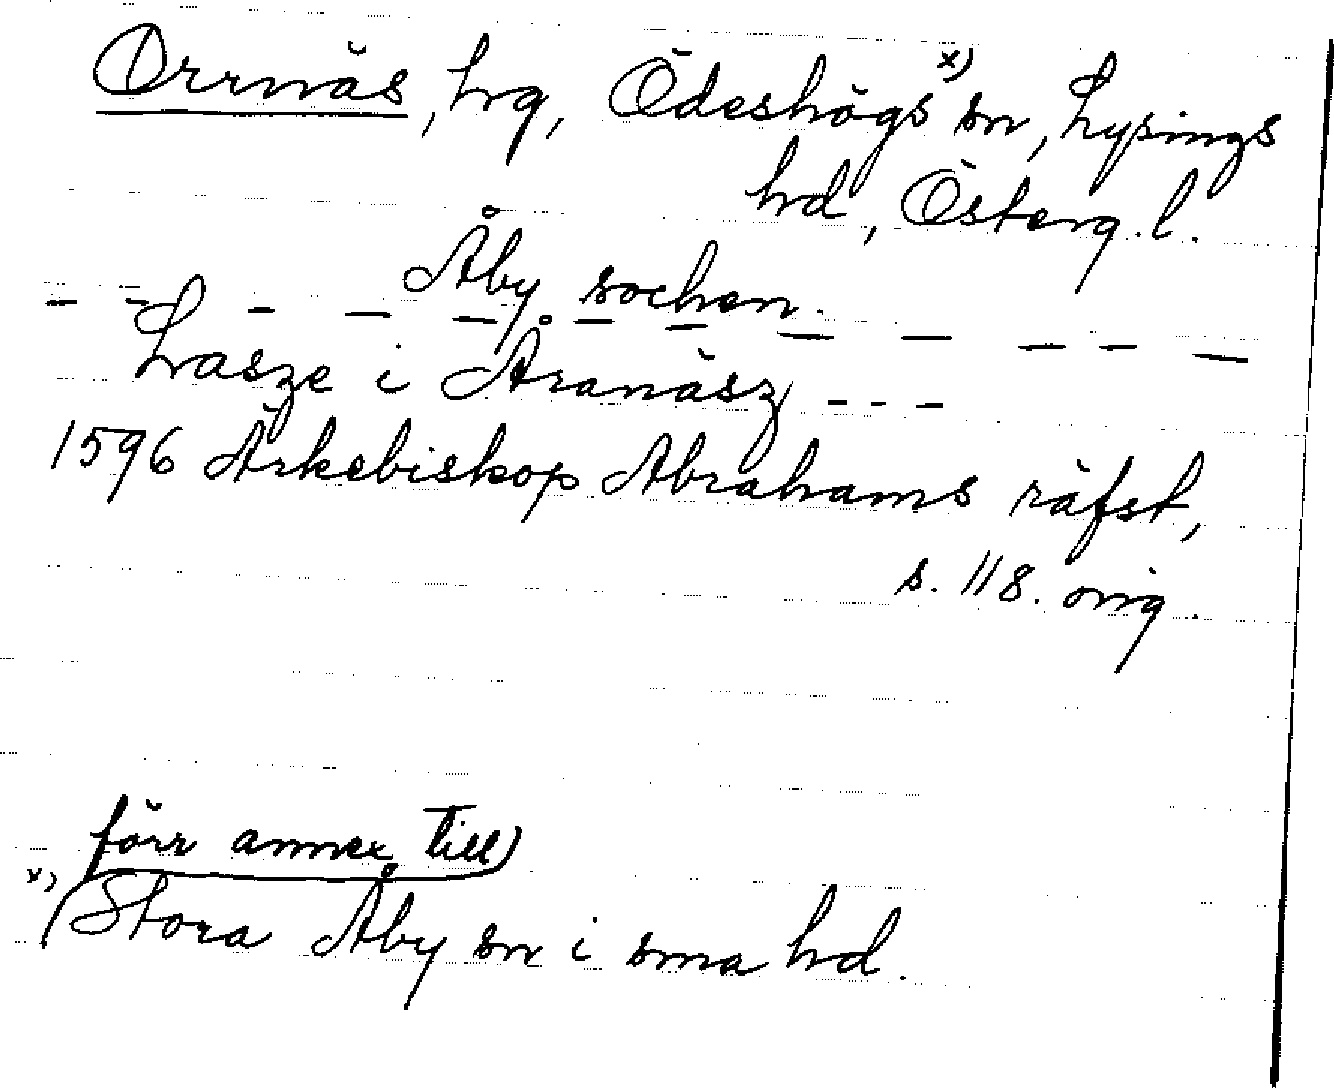 Orrnäs, hg, Ödeshögs x) sn, Lysings
hd, Österg. l.
Åby sochen.
- - - - - - - - - - - -
Lasze i Åranäsz - - -
1596 Ärkebiskop Abrahams räfst,
s. 118. orig.
förr annex till
x) Stora Åby sn i sma hd.